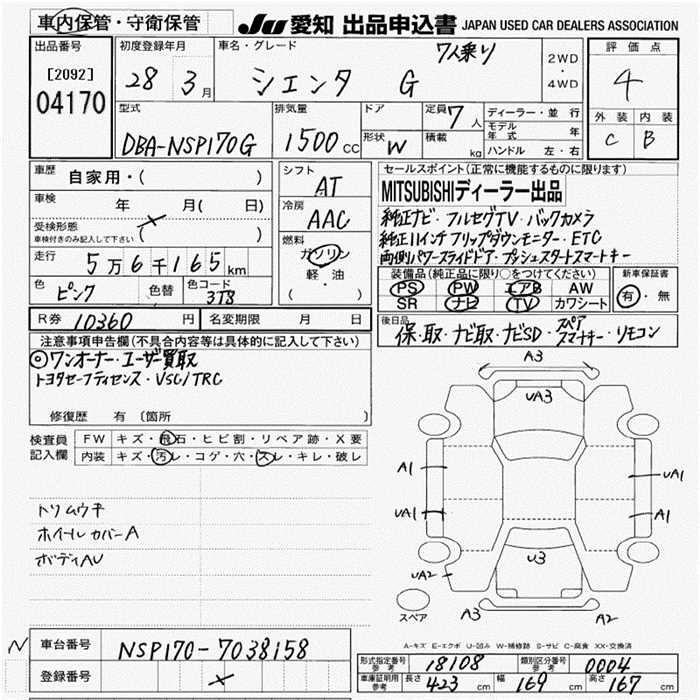 車内保管・守衛保管
JU 愛知 出品申込書 JAPAN USED CAR DEALERS ASSOCIATION
出品番号
[2092]
04170
初度登録年月
28 3月
車名・グレード
シエンタ G 7人乗り
2WD
・
4WD
評価点
4
外装 内装
C B
型式
DBA-NSP170G
排気量
1500cc
ドア
形状 W
定員 7人
積載 kg
ディーラー・並行
モデル年式 年
ハンドル 左・右
車歴
自家用・( )
車検
年 月( 日)
受検形態
車検付きのみ記入して下さい
( × )
走行
5万6千165km
色
ピンク
色替
色コード
3T8
シフト
AT
冷房
AAC
燃料
ガソリン
軽・油
( )
セールスポイント(正常に機能するものに限ります)
MITSUBISHIディーラー出品
純正ナビ・フルセグTV・バックカメラ
純正11インチフリップダウンモニター・ETC
両側パワースライドドア・プッシュスタートスマートキー
装備品(純正品に限り○をつけてください)
PS PW エアB AW
SR ナビ TV カワシート
新車保証書
有・無
R券 10360円
名変期限 月 日
後日品
保・取・ナビ取・ナビSD・スペアスマーキー・リモコン
注意事項申告欄(不具合内容等は具体的に記入して下さい)
◎ワンオーナー・ユーザー買取
トヨタセーフティセンス・VSC/TRC
修復歴 有 〔箇所 〕
検査員記入欄
FW キズ・飛石・ヒビ割・リペア跡・X要
内装 キズ・汚レ・コゲ・穴・スレ・キレ・破レ
トリムウキ
ホイールカバーA
ボディAU
A3
UA3
A1
UA1
UA1
A1
U3
UA2
A3
A2
スペア
A-キズ E-エクボ U-凹み W-補修跡 S-サビ C-腐食 XX-交換済
N
車台番号 NSP170-7038158
登録番号 ×
形式指定番号参考 18108
類別区分番号参考 0004
車庫証明用参考 長さ 423cm 幅 169cm 高さ 167cm